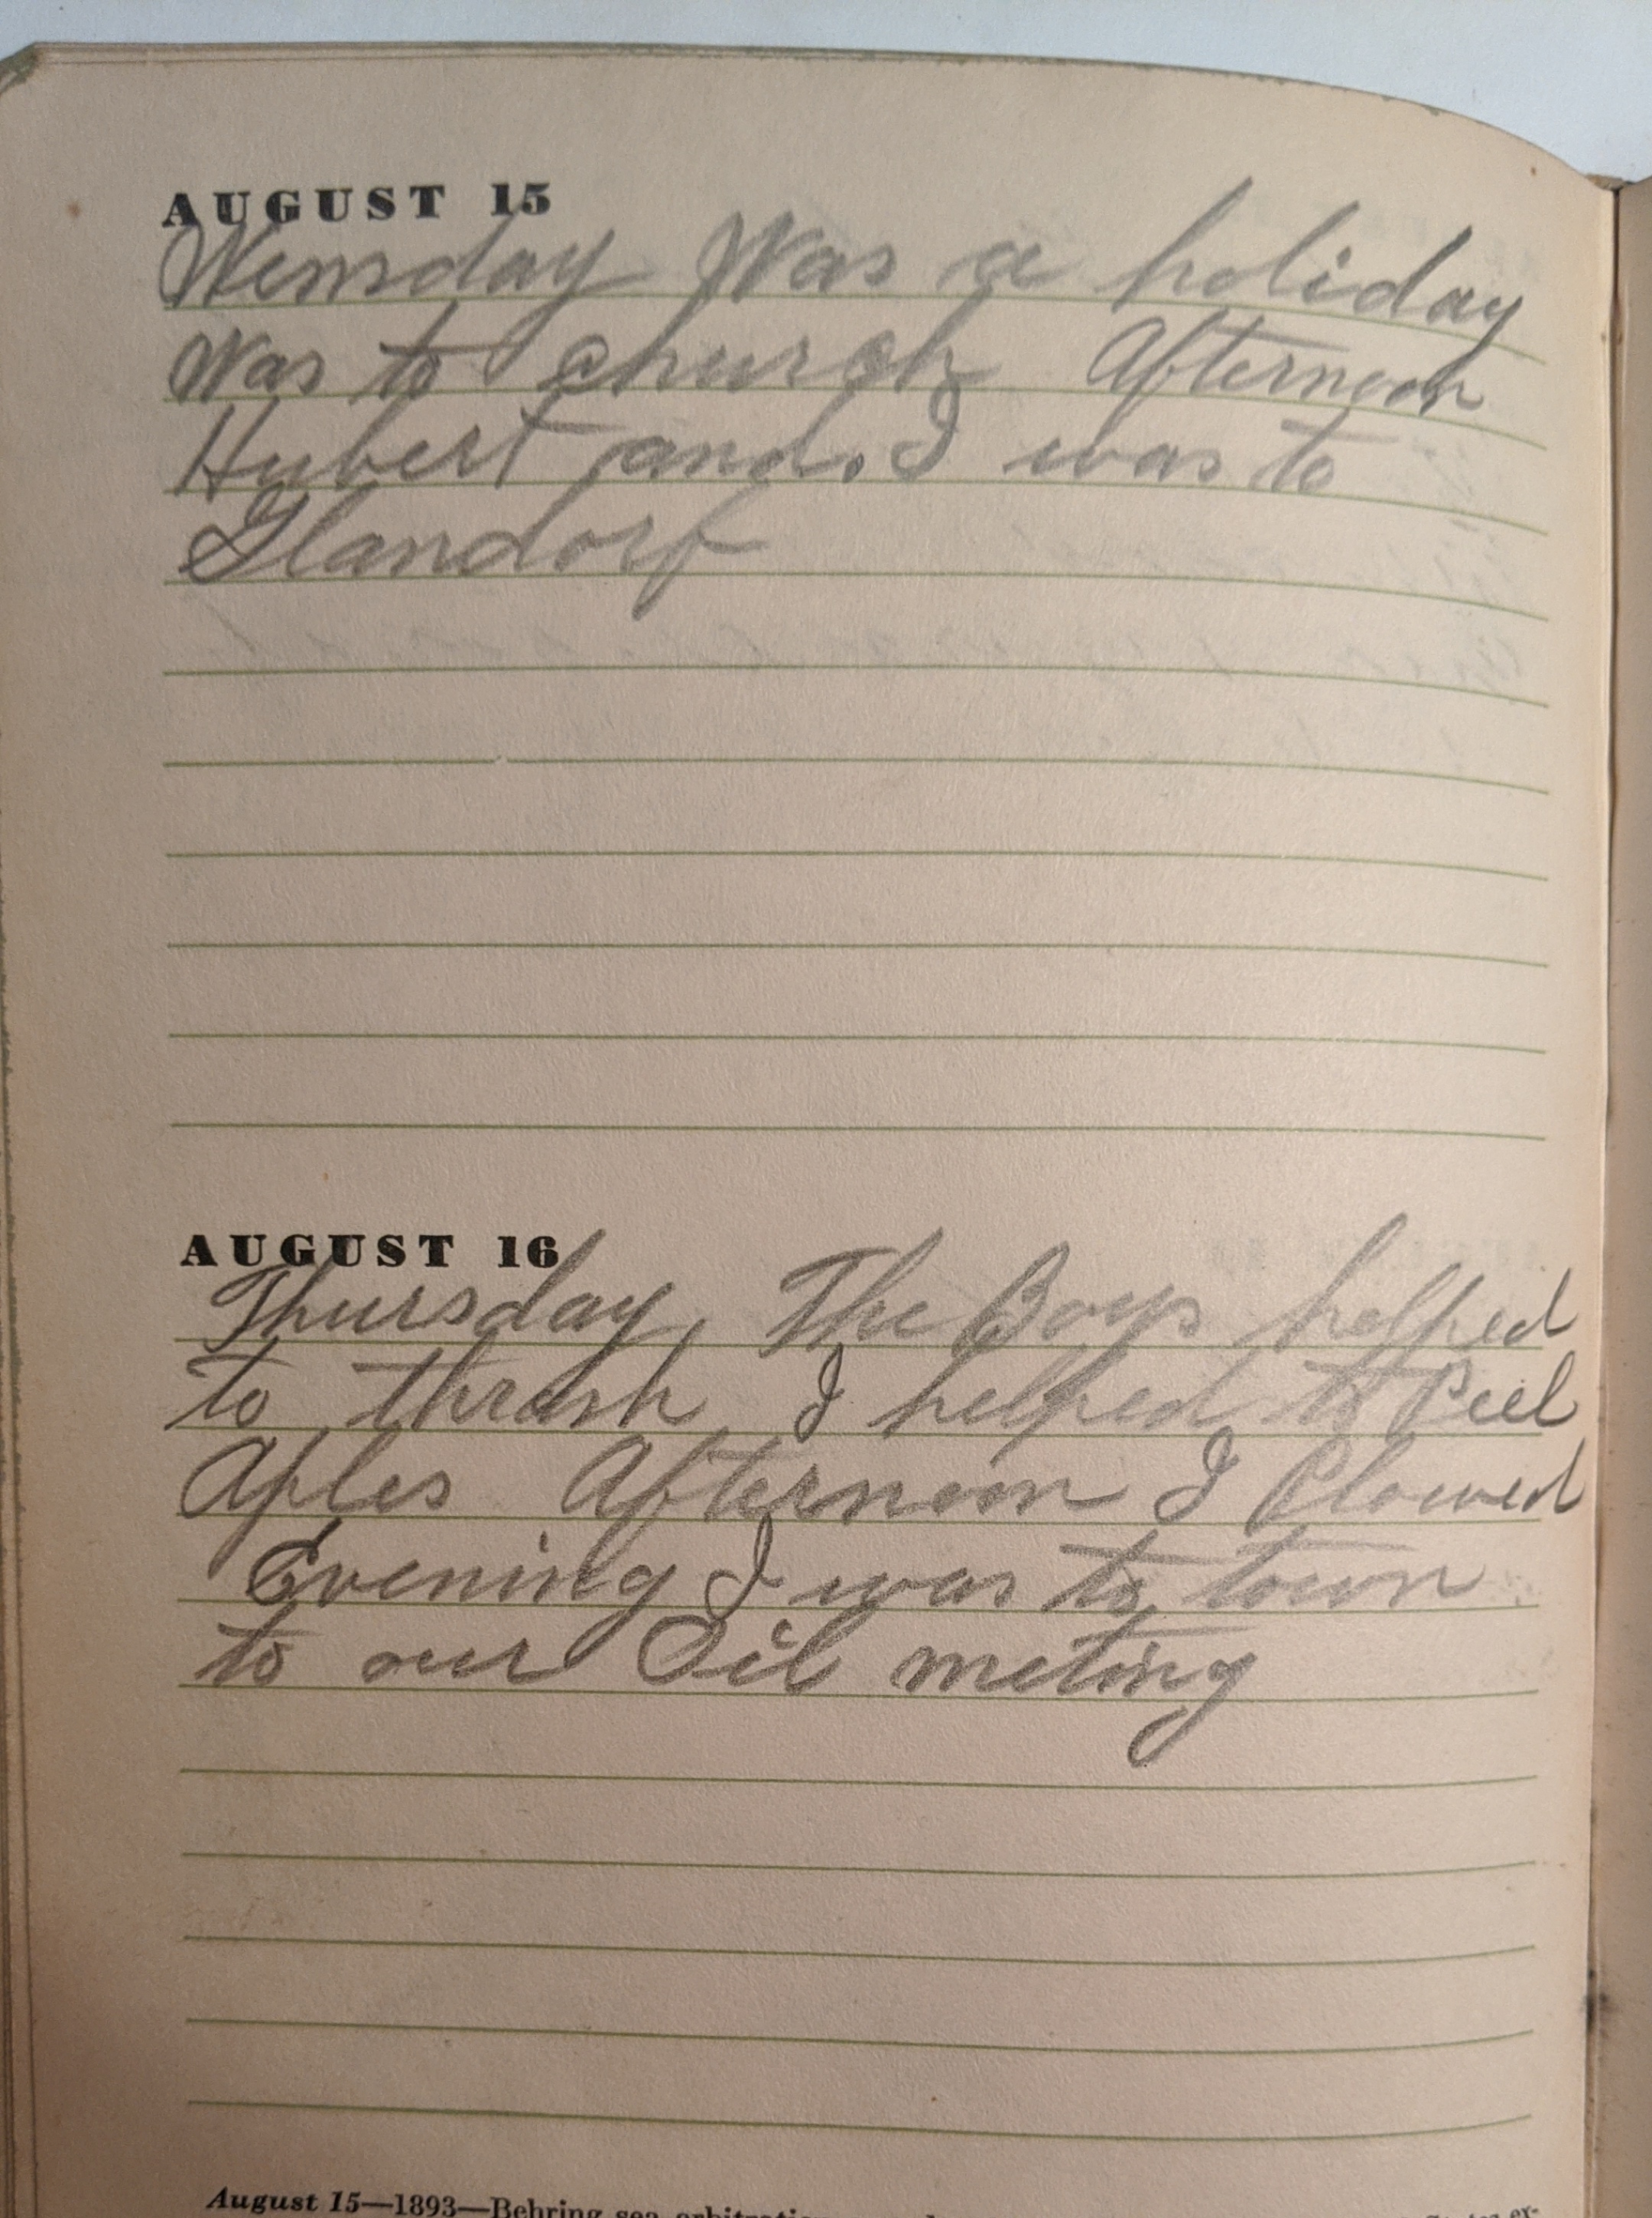 AUGUST 15
Wensday Was a holiday
Was to church Afternoon
Hubert and. I was to
Glandorf
AUGUST 16
Thursday, The Boys helped
to thrash I helped to Peel
Aples Afternoon I Plowed
Evening I was to town
to our Oil meting
August 15—1893—Behring sea